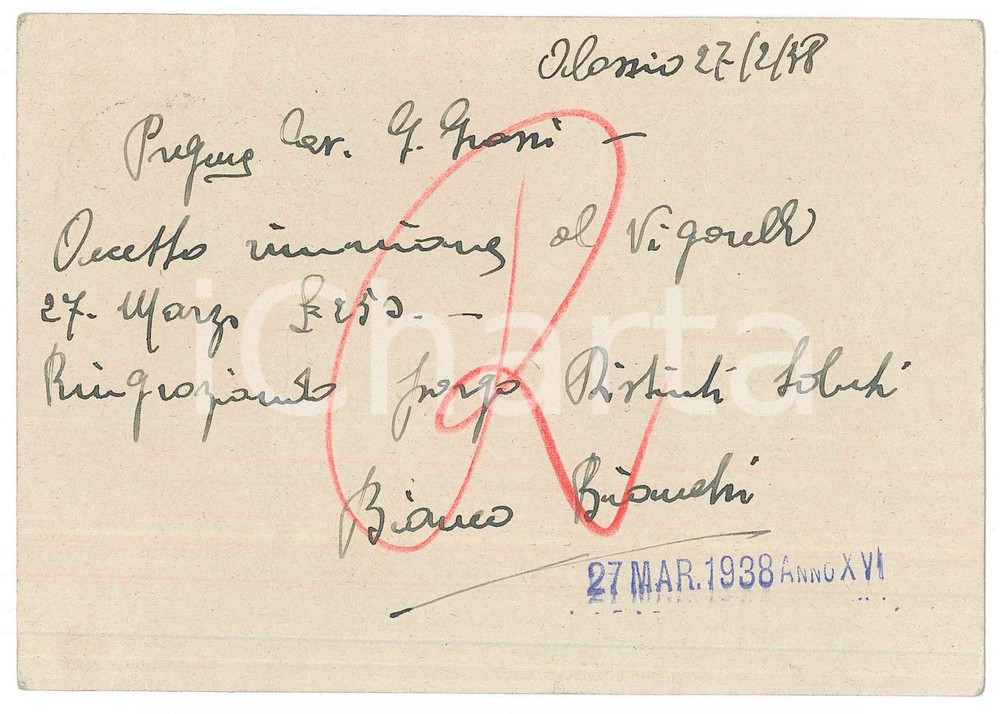 Alassio 27/2/38
Pregmo Cav. G. Grassi -
Accetto riunione al Vigorelli
27. Marzo £ 250. -
Ringraziando porgo Distinti Saluti
R
Bianco Bianchi
27 MAR. 1938 ANNO XVI
iCharta